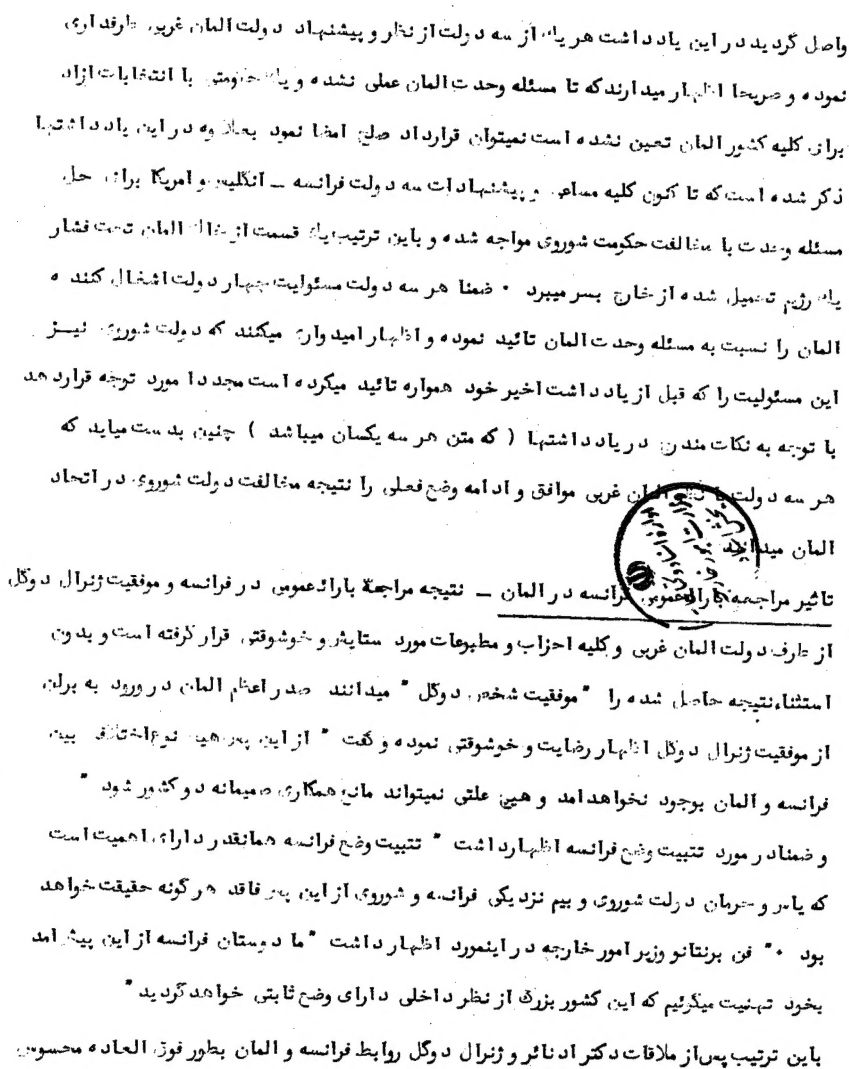 واصل گردید در این یادداشت هر یک از سه دولت از نظر و پیشنهاد دولت المان غربی طرفداری
نموده و صریحا اظهار میدارند که تا مسئله وحدت المان عملی نشده و یک حکومتی با انتخابات ازاد
برای کلیه کشور المان تعین نشده است نمیتوان قرارداد صلح امضا نمود بعلاوه در این یادداشتها
ذکر شده است که تا کنون کلیه مساعی و پیشنهادات سه دولت فرانسه ـ انگلیس و امریکا برای حل
مسئله وحدت با مخالفت حکومت شوروی مواجه شده و باین ترتیب یک قسمت از خاک المان تحت فشار
یک رژیم تحمیل شده از خارج بسر میبرد ۰ ضمنا هر سه دولت مسئولیت چهار دولت اشغال کننده
المان را نسبت به مسئله وحدت المان تائید نموده و اظهار امیدواری میکنند که دولت شوروی نیــز
این مسئولیت را که قبل از یادداشت اخیر خود همواره تائید میکرده است مجددا مورد توجه قراردهد
با توجه به نکات مندرج در یادداشتها ( که متن هر سه یکسان میباشد ) چنین بدست میاید که
هر سه دولت با نظر المان غربی موافق و ادامه وضع فعلی را نتیجه مخالفت دولت شوروی در اتحاد
المان میدانند
تاثیر مراجعه باراءعمومی فرانسه در المان ـ نتیجه مراجعه باراءعمومی در فرانسه و موفقیت ژنرال دوگل
از طرف دولت المان غربی وکلیه احزاب و مطبوعات مورد ستایش و خوشوقتی قرار گرفته است و بدون
استثناء نتیجه حاصل شده را " موفقیت شخص دوگل " میدانند صدر اعظم المان در ورود به برلن
از موفقیت ژنرال دوگل اظهار رضایت و خوشوقتی نموده و گفت " از این پس هیچ نوع اختلاف بین
فرانسه و المان بوجود نخواهد امد و هیچ علتی نمیتواند مانع همکاری صمیمانه دو کشور شود "
و ضمنا در مورد تثبیت وضع فرانسه اظهارداشت " تثبیت وضع فرانسه همانقدر دارای اهمیت است
که یاس و حرمان دولت شوروی و بیم نزدیکی فرانسه و شوروی از این پس فاقد هرگونه حقیقت خواهد
بود ۰" فن برنتانو وزیر امور خارجه در اینمورد اظهار داشت " ما دوستان فرانسه از این پیش امد
بخود تهنیت میگوئیم که این کشور بزرگ از نظر داخلی دارای وضع ثابتی خواهد گردید "
باین ترتیب پس از ملاقات دکتر ادنائر و ژنرال دوگل روابط فرانسه و المان بطور فوق العاده محسوس